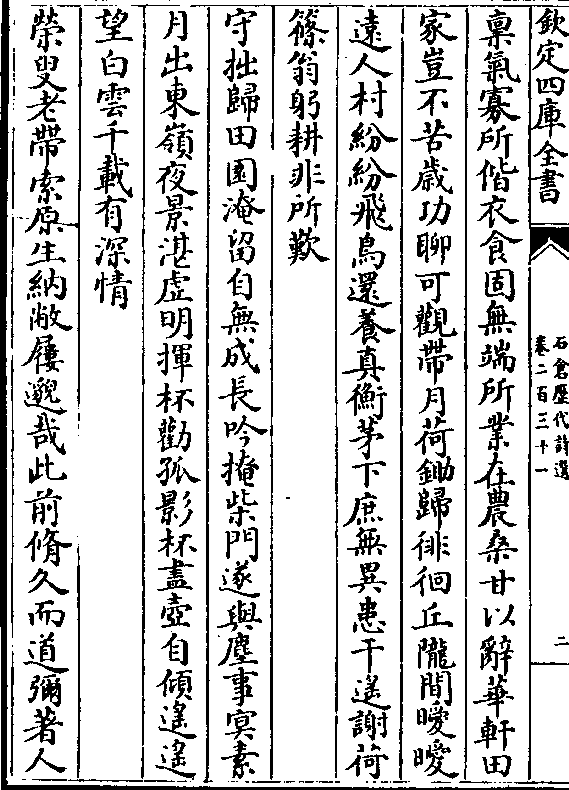 欽定四庫全書
石倉歷代詩選
卷二百三十一
二
稟氣寡所偕衣食固無端所業在農桑甘以辭華軒田
家豈不苦歲功聊可觀帶月荷鋤歸徘徊丘隴間曖曖
遠人村紛紛飛鳥還養真衡茅下庶無異患干遙謝荷
篠翁躬耕非所歎
守拙歸田園淹留自無成長吟掩柴門遂與塵事冥素
月出東嶺夜景湛虛明揮杯勸孤影杯盡壺自傾遙遙
望白雲千載有深情
榮叟老帶索原生納敝屨邈哉此前脩久而道彌著人